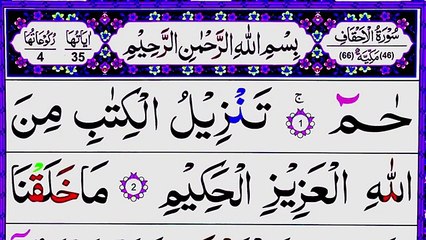 سُوْرَةُ الْاَحْقَافِ
(46) مَكِّيَّةٌ (66)
بِسْمِ اللّٰهِ الرَّحْمٰنِ الرَّحِيْمِ
اٰيَاتُهَا 35
رُكُوْعَاتُهَا 4
حٰمٓ ۚ 1 تَنْزِيْلُ الْكِتٰبِ مِنَ
اللّٰهِ الْعَزِيْزِ الْحَكِيْمِ 2 مَا خَلَقْنَا